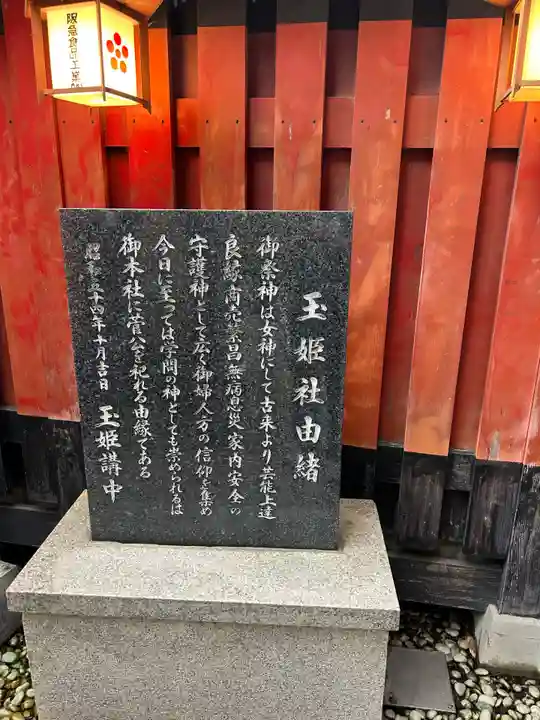 阪急食品工業㈱
玉姫社由緒
御祭神は女神にて古来より芸能上達
良縁商売繁昌無病息災家内安全の
守護神として広く御婦人方の信仰を集め
今日に至つては学問の神としても崇められるは
御本社に菅公を祀れる由縁である
昭和五十四年十月吉日 玉姫講中